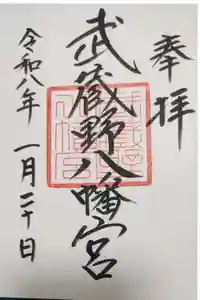 奉拝
武蔵野八幡宮
令和八年 一月二十日